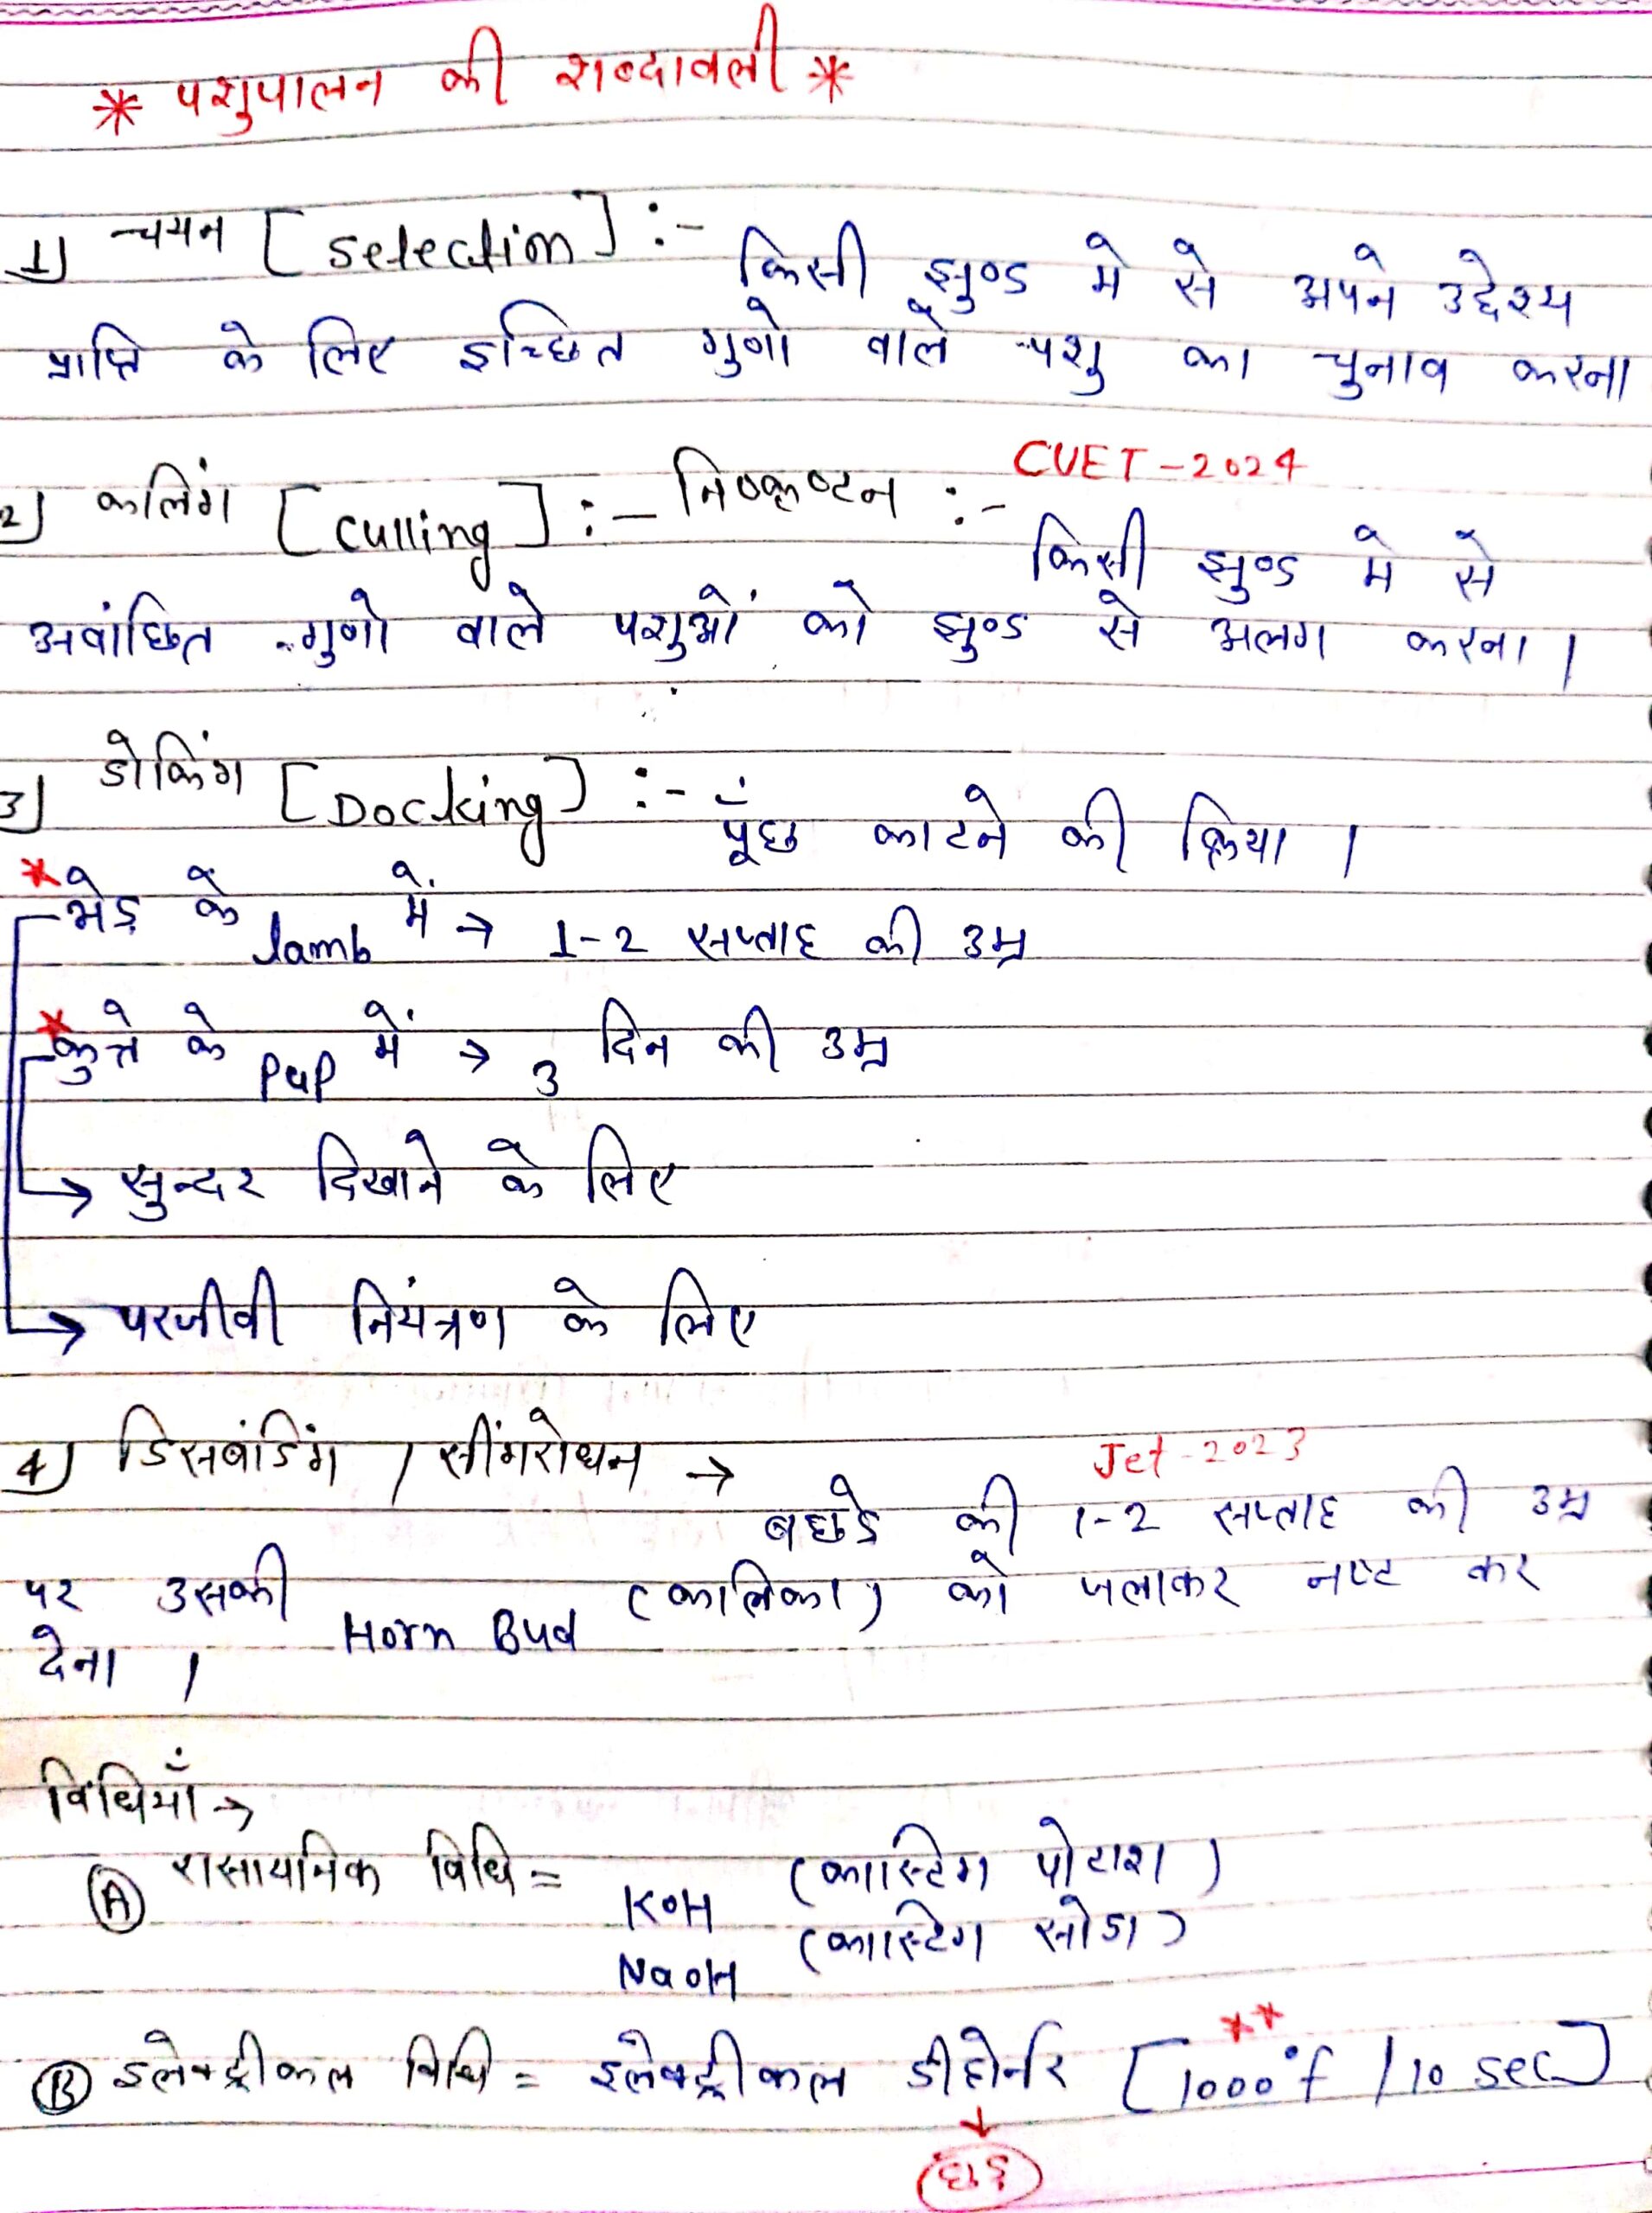 * पशुपालन की शब्दावली *
1) चयन [selection] :-
किसी झुण्ड मे से अपने उद्देश्य
प्राप्ति के लिए इच्छित गुणो वाले पशु का चुनाव करना
CUET-2024
2) कलिंग [culling] :- निष्कृष्टन :-
किसी झुण्ड मे से
अवांछित गुणो वाले पशुओं को झुण्ड से अलग करना।
3) डोकिंग [Docking] :-
पूँछ काटने की क्रिया।
* भेड़ के lamb में → 1-2 सप्ताह की उम्र
* कुत्ते के pup में → 3 दिन की उम्र
→ सुन्दर दिखाने के लिए
→ परजीवी नियंत्रण के लिए
4) डिसबंडिंग / सींगरोधन → Jet-2023
बछडे की 1-2 सप्ताह की उम्र
पर उसकी Horn Bud (कालिका) को जलाकर नष्ट कर
देना।
विधियाँ →
(A) रासायनिक विधि = KOH (कास्टिग पोटाश)
NaOH (कास्टिग सोडा)
(B) इलेक्ट्रीकल विधि = इलेक्ट्रीकल डीहोर्नर [1000°f / 10 sec] **
↓